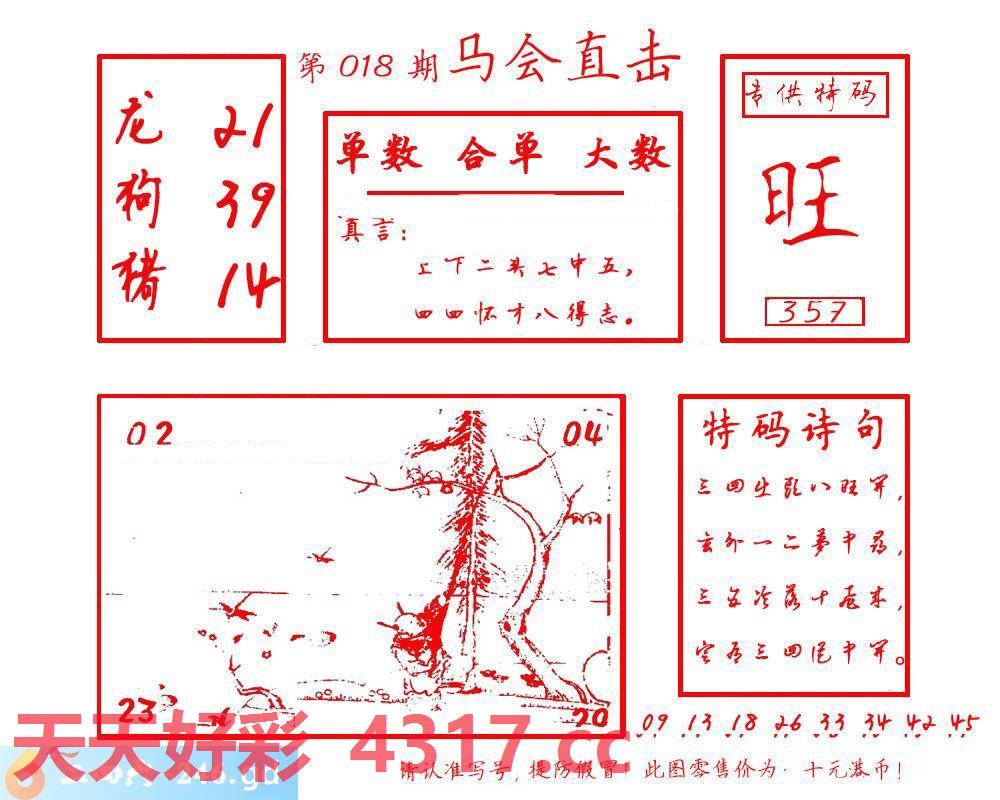 第 018 期 马会直击
龙 21
狗 39
猪 14
单数 合单 大数
真言:
上下二头七中五,
四四怀才八得志。
专供特码
旺
357
02
04
23
20
特码诗句
三四生肖八旺开,
玄外一二梦中寻,
三五冷落十卷来,
09 13 18 26 33 34 42 45
天天好彩 4317.cc
246.gd
请认准写号, 提防假冒! 此图零售价为: 十元港币!